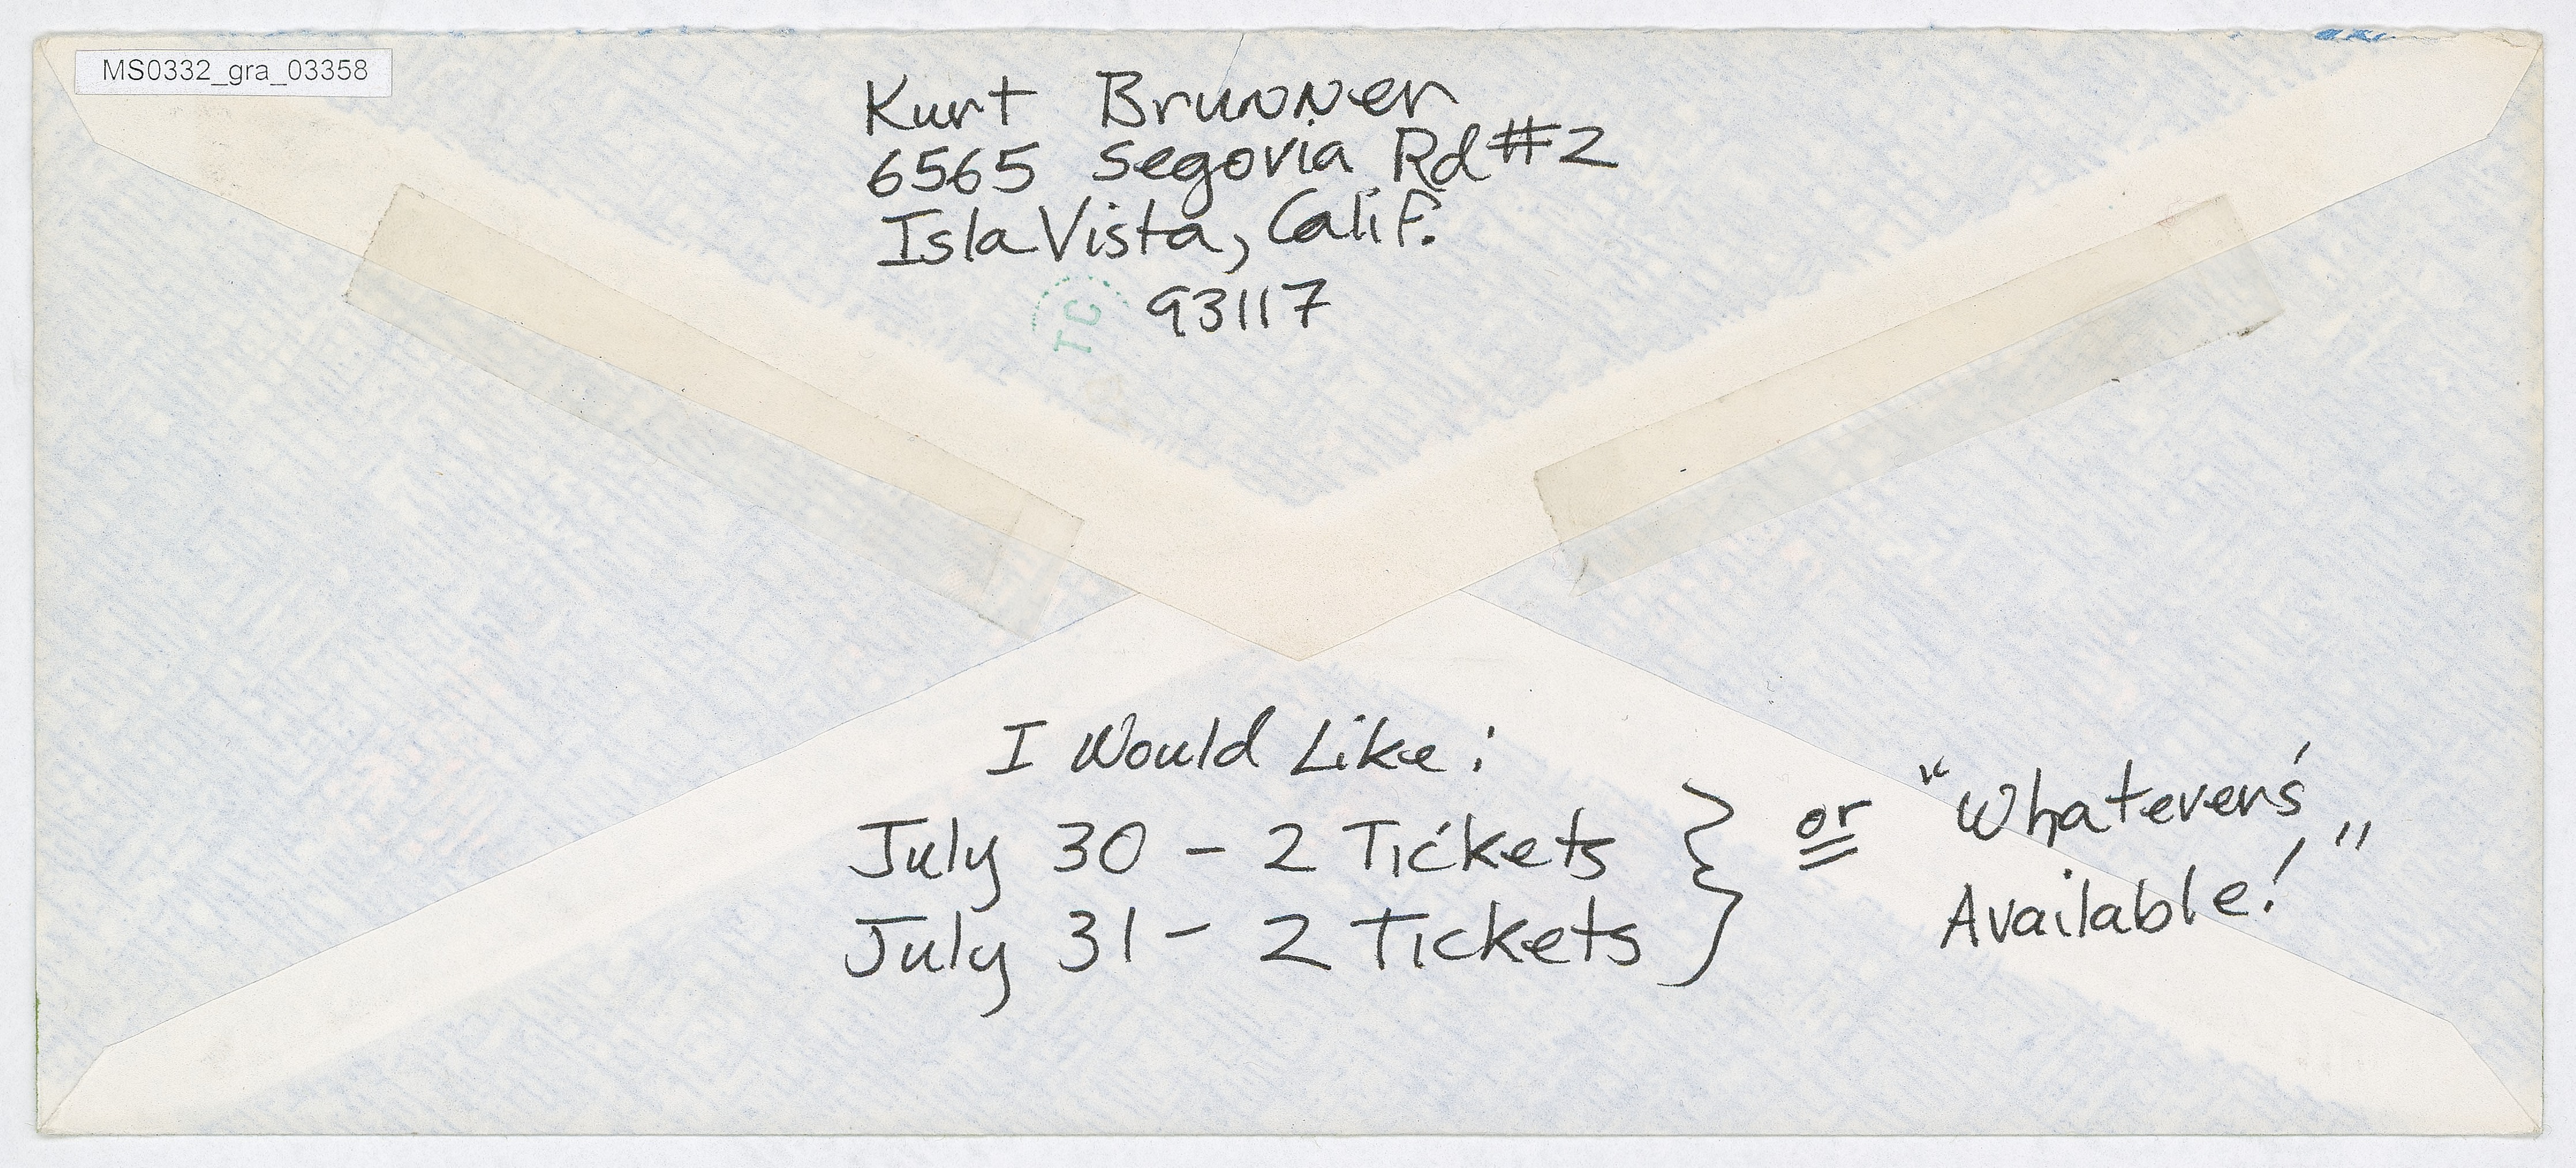 MS0332_gra_03358
Kurt Brunner
6565 Segovia Rd #2
Isla Vista, Calif.
93117
TC
I Would Like:
July 30 - 2 Tickets
July 31 - 2 Tickets
} or "Whatever's
Available!"